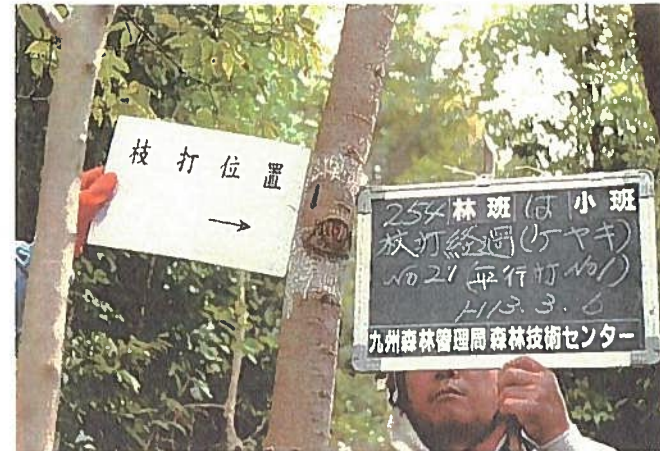 枝打位置
→
1
254林班は小班
枝打経過(ケヤキ)
NO21(平行打NO1)
H13.3.6
九州森林管理局森林技術センター